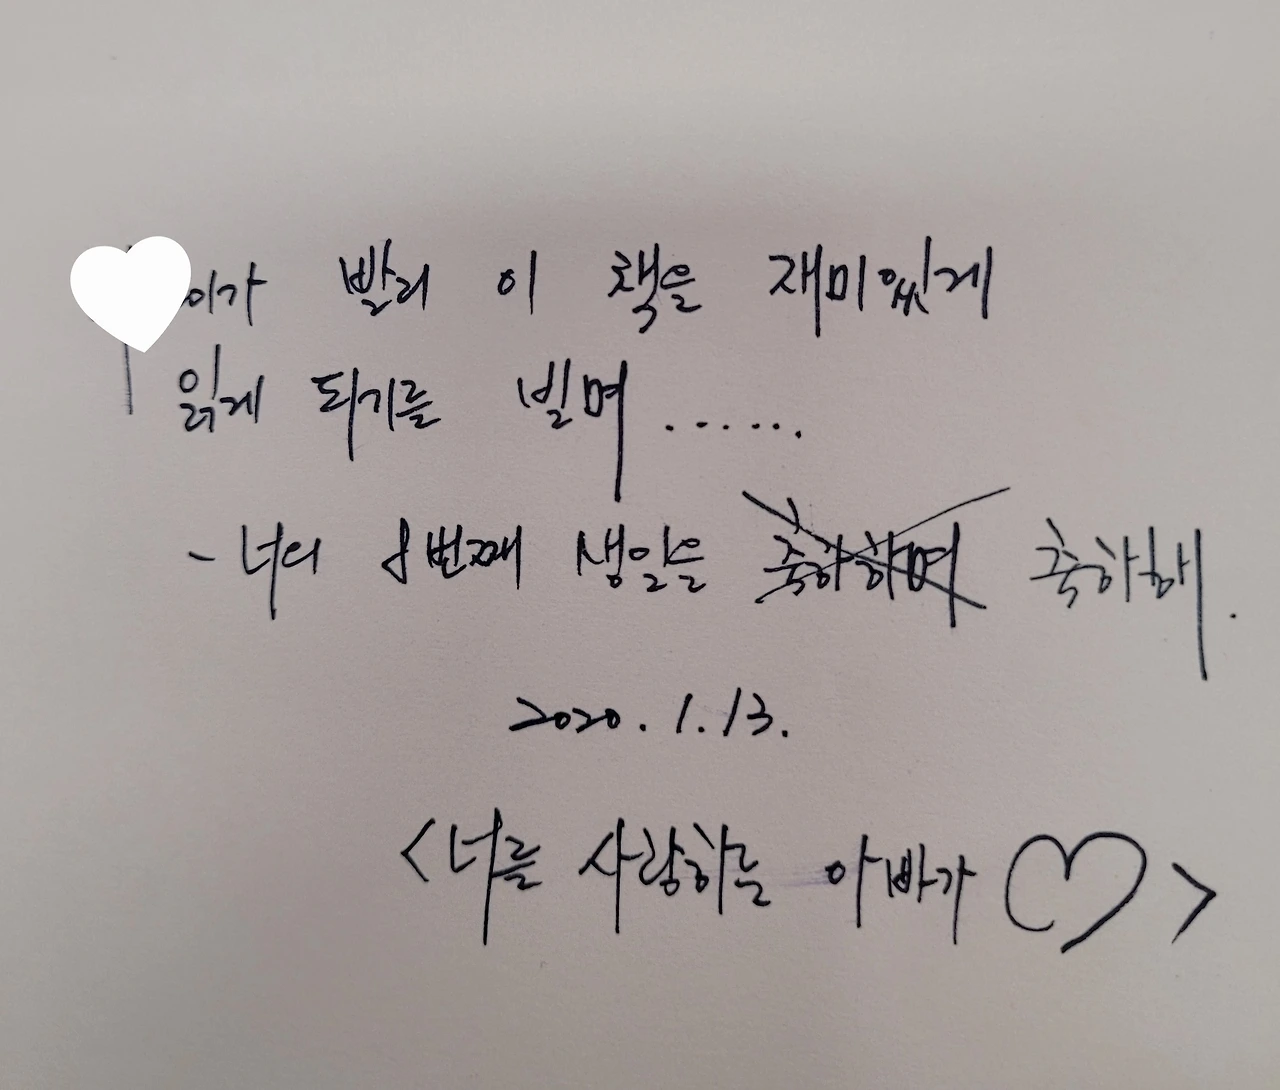 이가 빨리 이 책을 재미있게
읽게 되기를 빌며 ......
- 너의 8번째 생일을 축하하며 축하해.
2020. 1. 13.
<너를 사랑하는 아빠가 ♡>